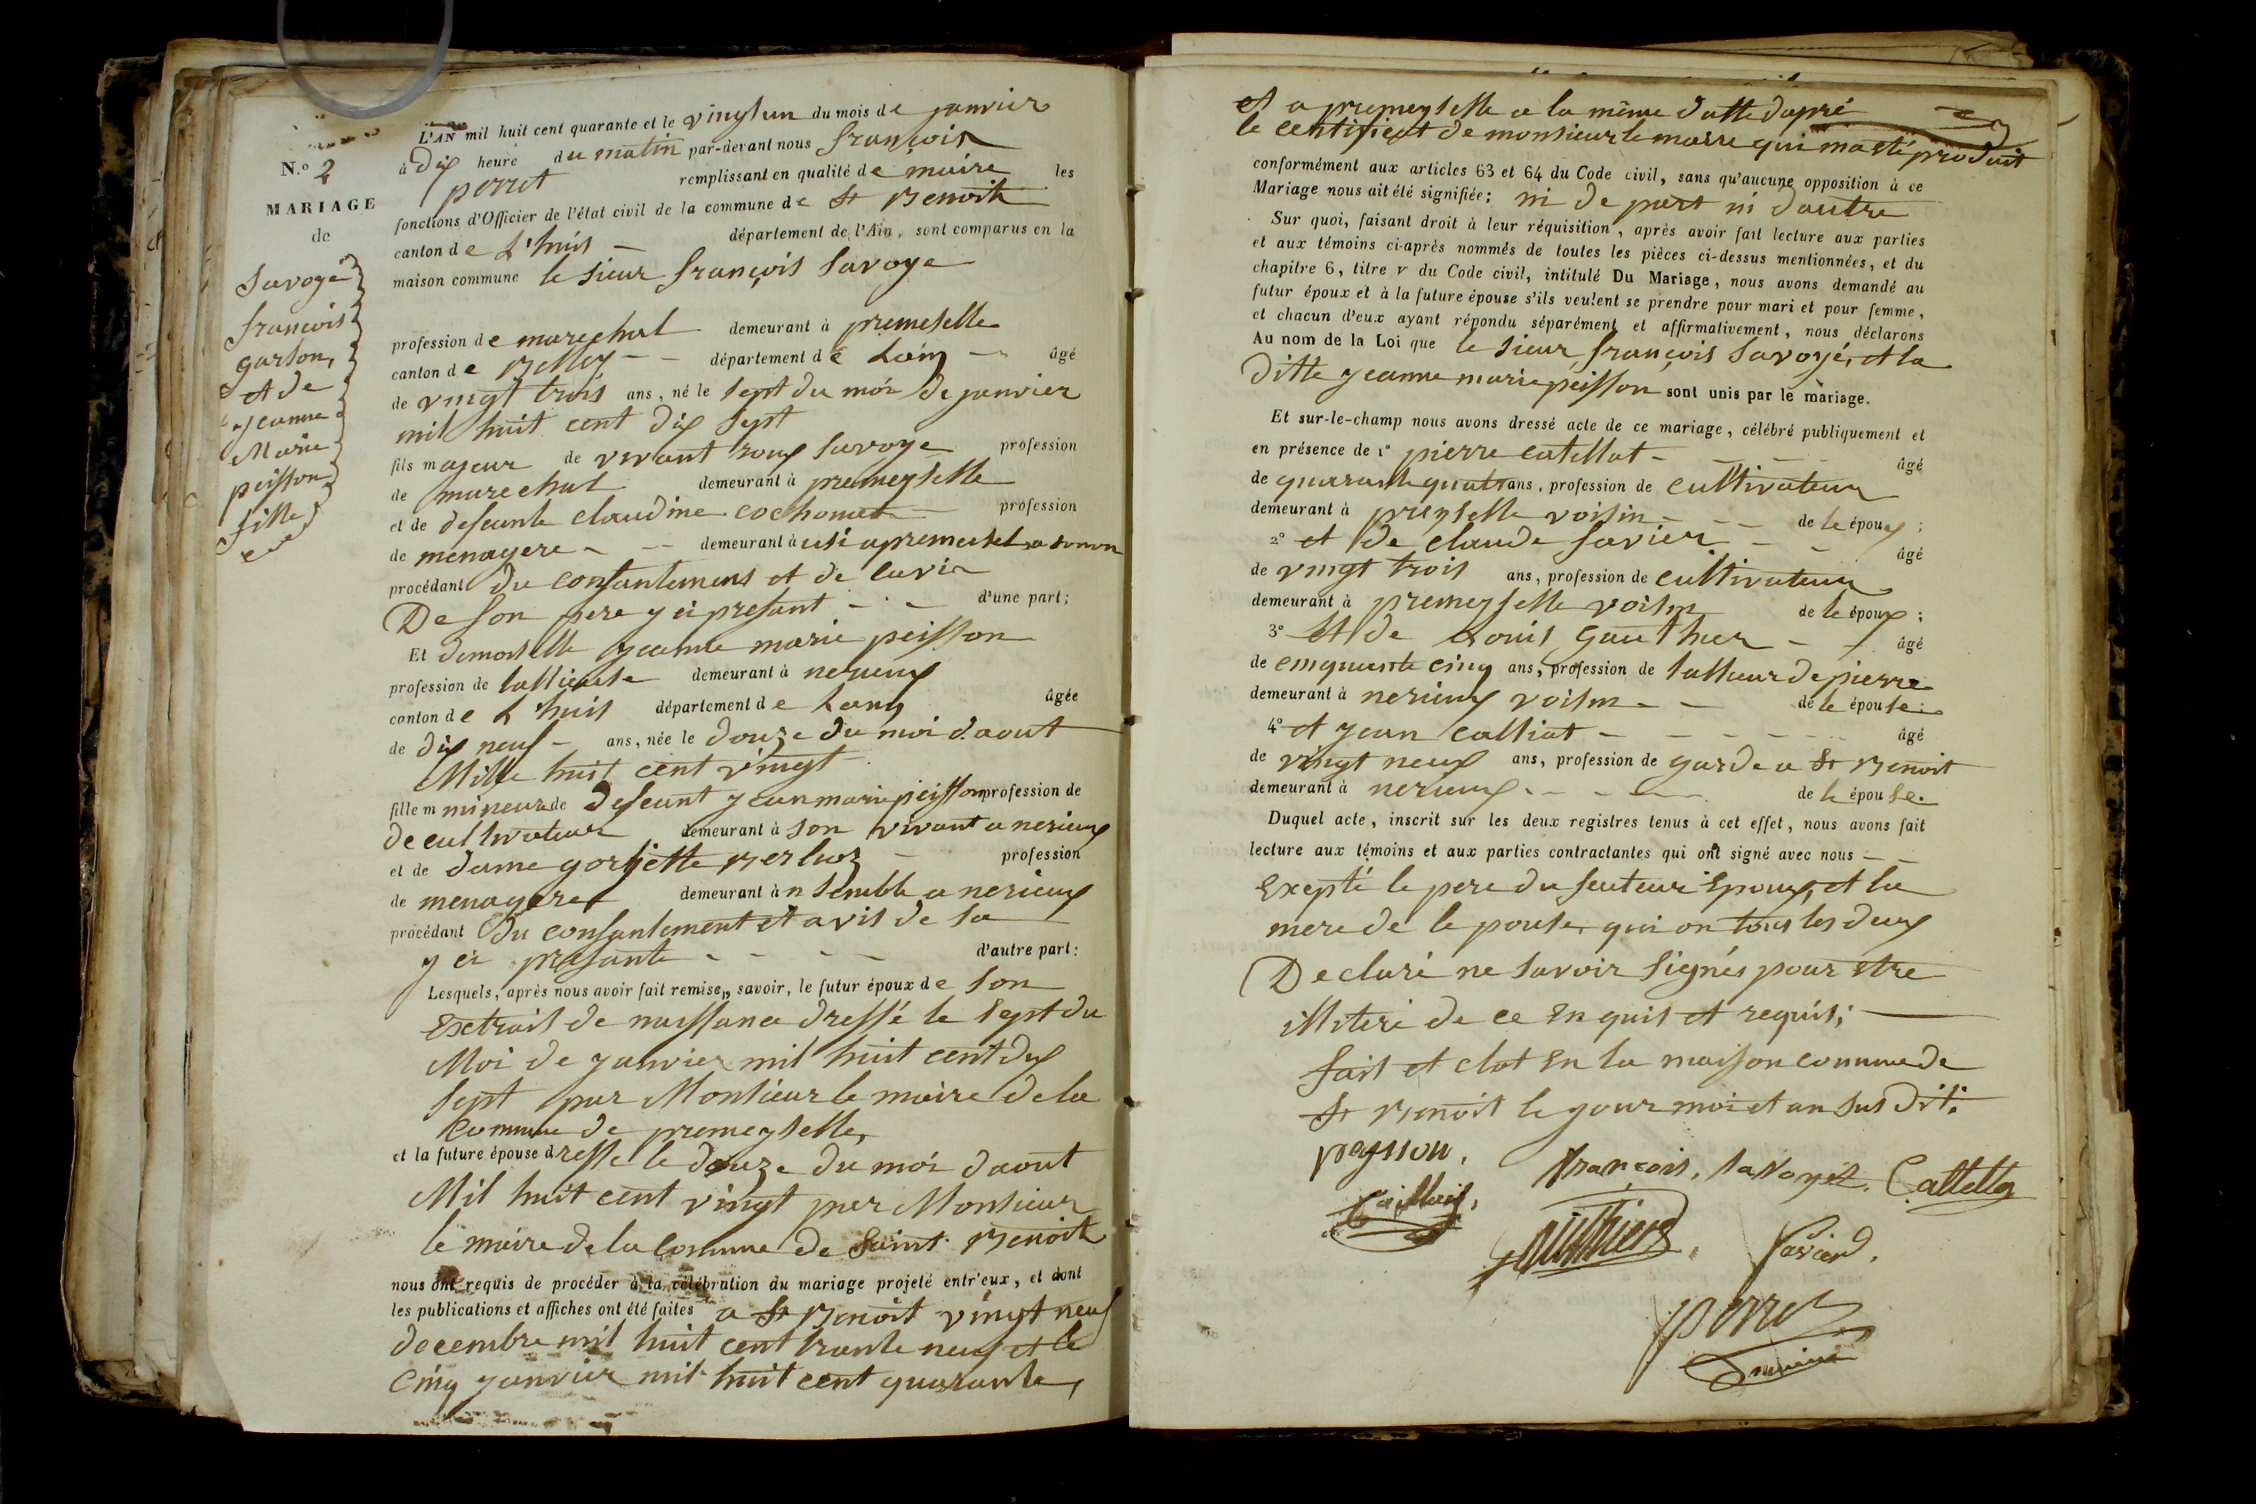 N.o 2
MARIAGE
de
Savoyé
françois
garson,
et de
yeanne
Marie
peisson
fille
L'AN mil huit cent quarante et le vingt un du mois de janvier
à Dix heure du matin par-devant nous françois
perret remplissant en qualité de maire les
fonctions d'Officier de l'état civil de la commune de St Benoit
canton de L'huis département de l'Ain, sont comparus en la
maison commune le sieur françois Savoye
profession de marechal demeurant à premeselle
canton de Belley département de Lain âgé
de vingt trois ans, né le sept du moi de janvier
mil huit cent dix sept
fils majeur de vivant Savoye profession
de marechal demeurant à premeyselle
et de defeunte claudine cochonat profession
de menagere demeurant à
procédant du consantemens et de lavis
De son pere y ci presant d'une part;
Et demoiselle yeanne marie peisson
profession de tallieuse demeurant à nerieux
canton de L'huis département de Lain âgée
de dix neuf ans, née le douze du moi daout
Mille huit cent vingt
fille m mineure de defeunt yean marie peisson profession de
de cultivateur demeurant à son vivant a nerieux
et de dame profession
de menagere demeurant à nsemble a nerieux
procédant Du consantement et avis de sa
y ci presante d'autre part:
Lesquels, après nous avoir fait remise, savoir, le futur époux de son
Extrait de naissance dressé le sept du
Moi de janvier mil huit cent dix
sept par Monsieur le maire de la
Commune de premeyselle,
et la future épouse dresse le douze du moi daout
Mil huit cent vingt par Monsieur
le maire de la Commune de Saint Benoit
nous ont requis de procéder à la célébration du mariage projeté entr'eux, et dont
les publications et affiches ont été faites a St Benoit vingt neuf
decembre mil huit cent trante neuf et le
Cinq janvier mil huit cent quarante,
et a premeyselle a la même datte dapré
le certificat de monsieur le maire qui ma eté produit
conformément aux articles 63 et 64 du Code civil, sans qu'aucune opposition à ce
Mariage nous ait été signifiée; ni de part ni dautre
Sur quoi, faisant droit à leur réquisition, après avoir fait lecture aux parties
et aux témoins ci-après nommés de toutes les pièces ci-dessus mentionnées, et du
chapitre 6, titre v du Code civil, intitulé Du Mariage, nous avons demandé au
futur époux et à la future épouse s'ils veulent se prendre pour mari et pour femme,
et chacun d'eux ayant répondu séparément et affirmativement, nous déclarons
Au nom de la Loi que le sieur françois Savoyé, et la
Ditte yeanne marie peisson sont unis par le mariage.
Et sur-le-champ nous avons dressé acte de ce mariage, célébré publiquement et
en présence de 1o pierre catellat âgé
de quarante quatre ans, profession de cultivateur
demeurant à preyselle voisin de le époux;
2o et de claude Savier âgé
de vingt trois ans, profession de cultivateur
demeurant à premeyselle voisin de le époux;
3o Et de Louis Gauthier âgé
de cinquante cinq ans, profession de tallieur de pierre
demeurant à nerieux voisin de le épouse;
4o et yean calliat âgé
de vingt neuf ans, profession de garde a St Benoit
demeurant à nerieux de le épouse.
Duquel acte, inscrit sur les deux registres tenus à cet effet, nous avons fait
lecture aux témoins et aux parties contractantes qui ont signé avec nous
Exepté le pere du feuteur Epoux, et la
mere de le pouse qui on tous les deux
Declaré ne savoir signés pour etre
illiteré de ce Enquis et requis;
fait et clot En la maison commune de
St Benoit le your moi et an sus Dit.
peysson.
françois, savoyez. Cattella
Cailliat,
gauthier. Savier.
perret
maire